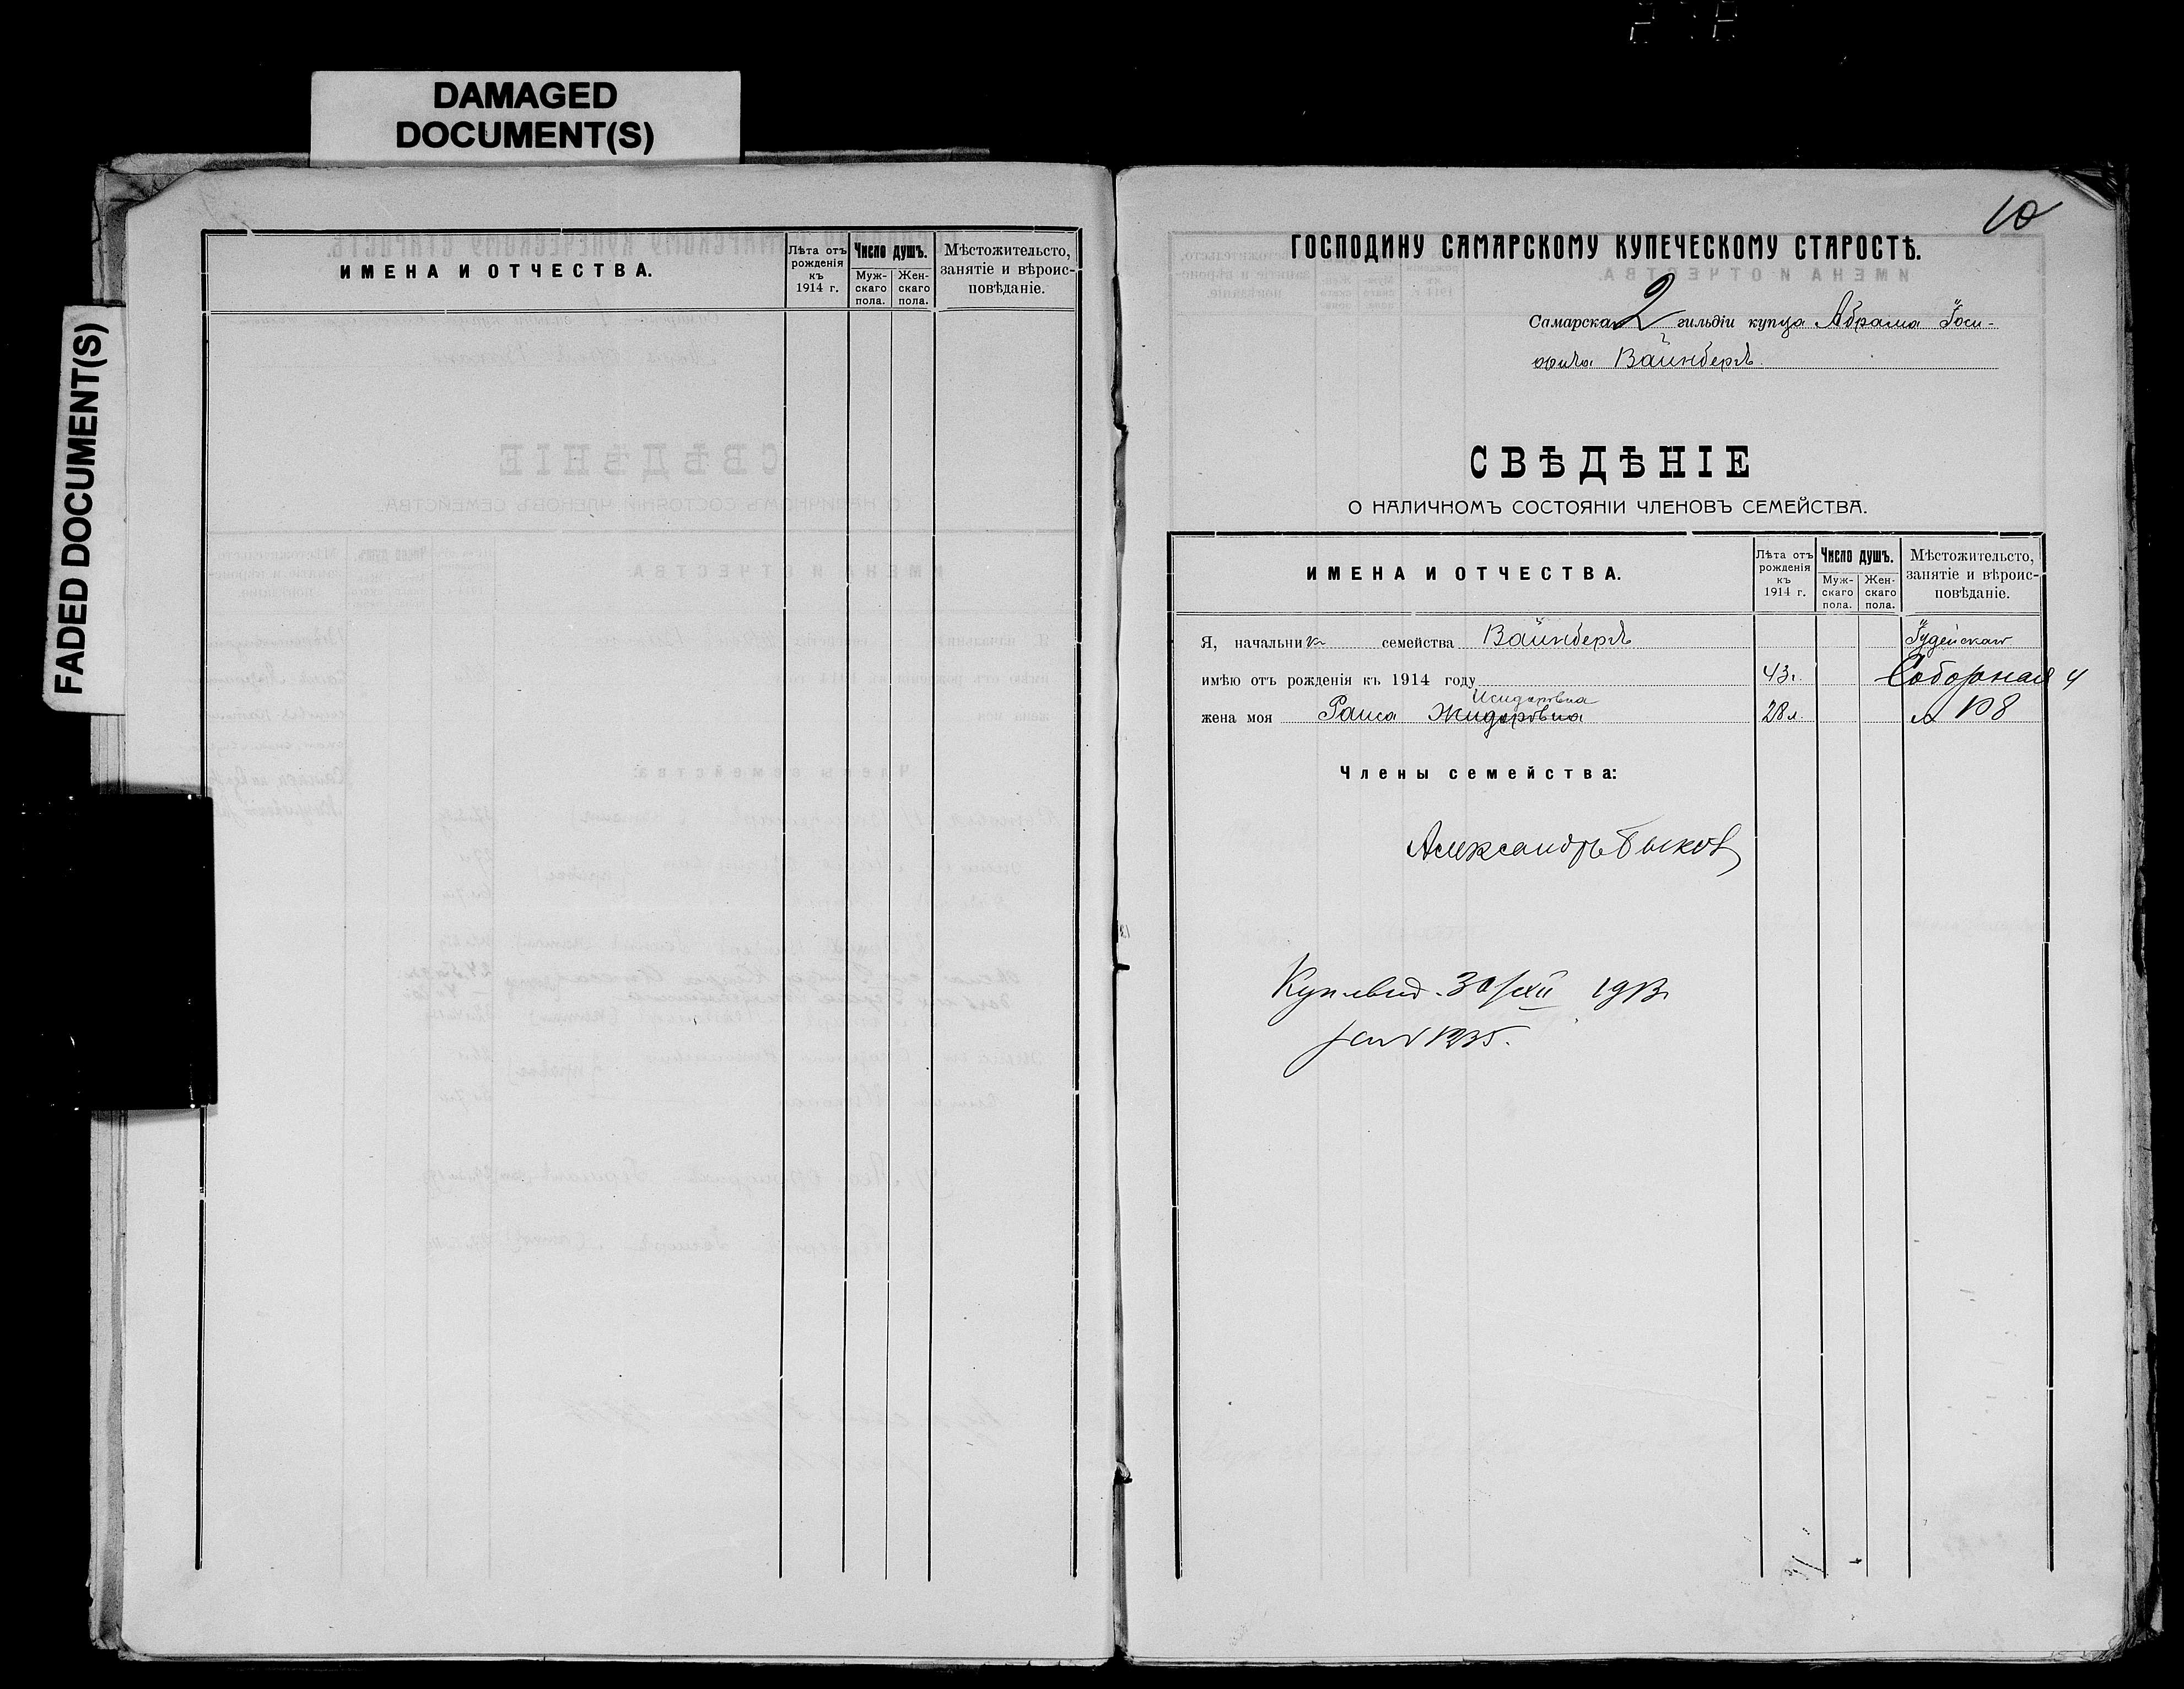 DAMAGED
DOCUMENT(S)
FADED DOCUMENT(S)
ИМЕНА И ОТЧЕСТВА.
Лѣта отъ рожденія къ 1914 г.
Число душъ.
Муж-скаго пола.
Жен-скаго пола.
Мѣстожительсто, занятіе и вѣроис-повѣданіе.
10
ГОСПОДИНУ САМАРСКОМУ КУПЕЧЕСКОМУ СТАРОСТѢ.
Самарска 2 гильдіи купца Абрама Іоси-
фова Вайнбергъ
СВѢДѢНІЕ
О НАЛИЧНОМЪ СОСТОЯНІИ ЧЛЕНОВЪ СЕМЕЙСТВА.
ИМЕНА И ОТЧЕСТВА.
Лѣта отъ рожденія къ 1914 г.
Число душъ.
Муж-скаго пола.
Жен-скаго пола.
Мѣстожительсто, занятіе и вѣроис-повѣданіе.
Я, начальник семейства Вайнбергъ Іудейская
имѣю отъ рожденія къ 1914 году 43 Соборная
Исидоровна
жена моя Раиса 28 л. 108
Члены семейства:
Александръ Быков
30/XII 1913